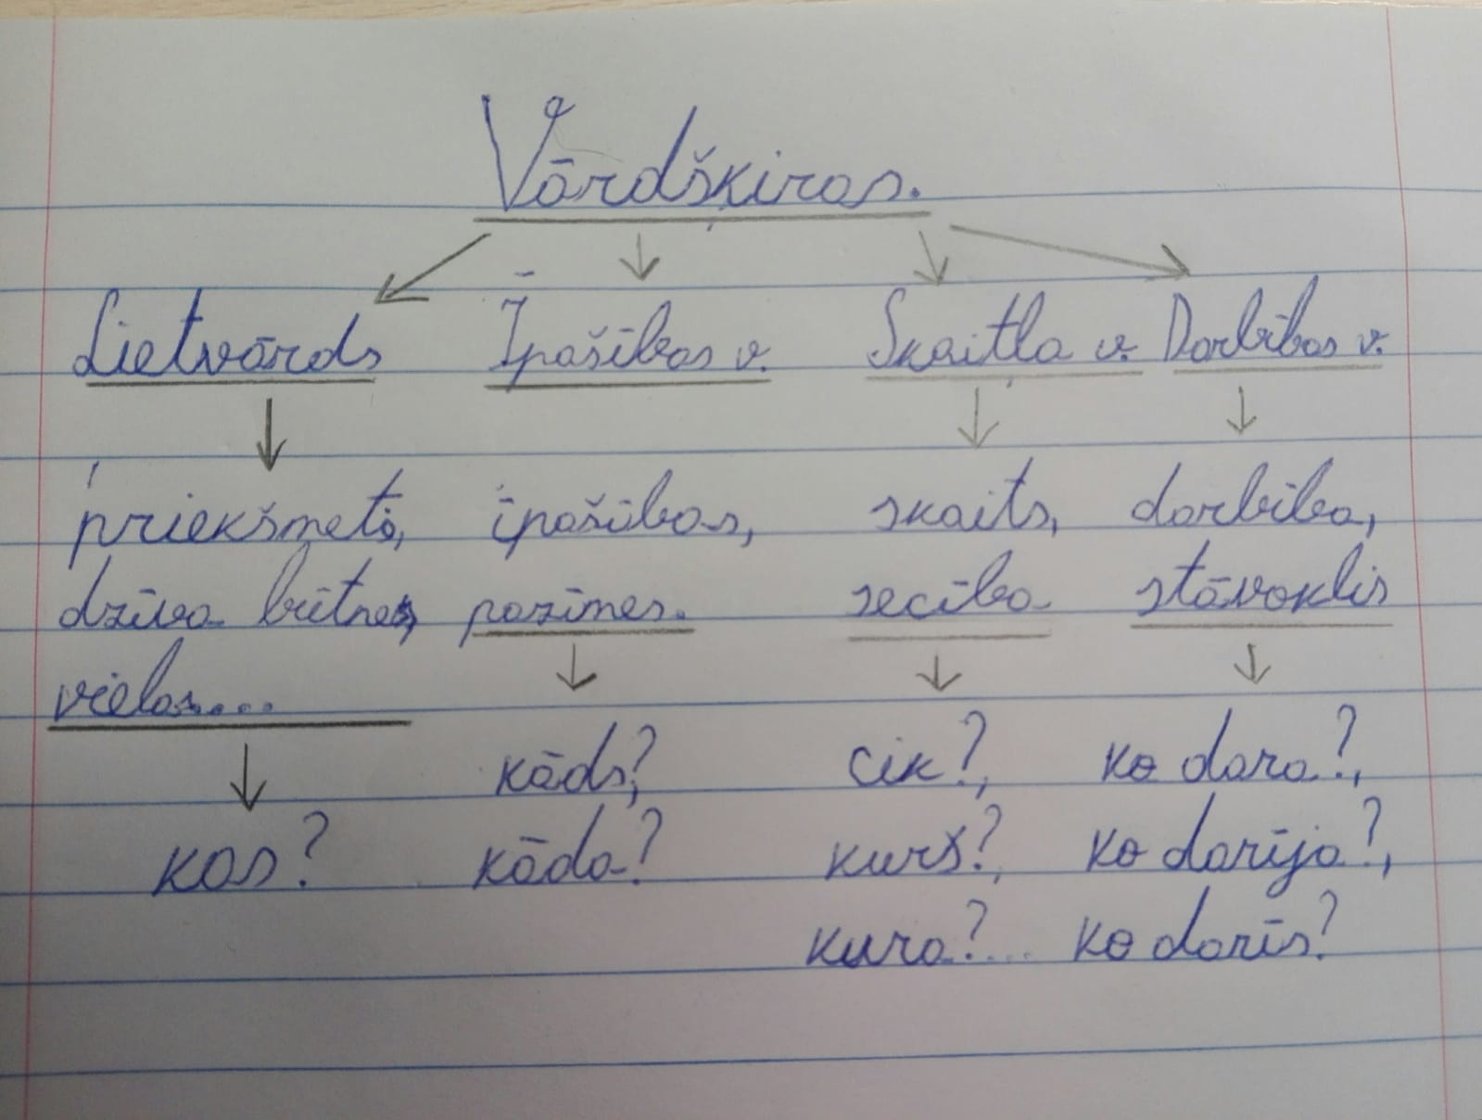 Vārdšķiras.
Lietvārds Īpašības v. Skaitļa v. Darbības v.
priekšmeti, īpašības, skaits, darbība,
dzīva būtnes, pazīmes. secība stāvoklis
vielas....
kāds?, cik?, ko dara?,
kas? kāda? kurš?, ko darīja?,
kura?... ko darīs?